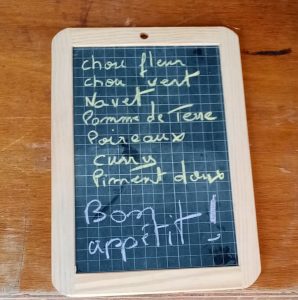 chou fleur
chou vert
Navet
Pomme de Terre
Poireaux
curry
Piment doux
Bon
appétit !